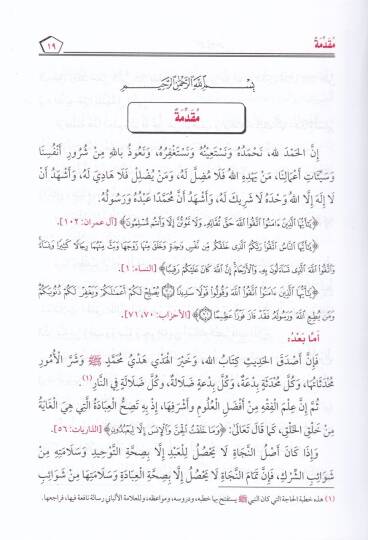 مُقَدِّمَةٌ
١٩
بِسْمِ اللَّهِ الرَّحْمَنِ الرَّحِيمِ
مُقَدِّمَةٌ
إِنَّ الْحَمْدَ لله، نَحْمَدُهُ وَنَسْتَعِينُهُ وَنَسْتَغْفِرُهُ، وَنَعُوذُ بِاللهِ مِنْ شُرُورِ أَنْفُسِنَا
وَسَيِّئَاتِ أَعْمَالِنَا، مَنْ يَهْدِهِ اللهُ فَلَا مُضِلَّ لَهُ، وَمَنْ يُضْلِلْ فَلَا هَادِيَ لَهُ، وَأَشْهَدُ أَنْ
لَا إِلَهَ إِلَّا اللهُ وَحْدَهُ لَا شَرِيكَ لَهُ، وَأَشْهَدُ أَنَّ مُحَمَّدًا عَبْدُهُ وَرَسُولُهُ.
﴿يَٰٓأَيُّهَا الَّذِينَ ءَامَنُوا اتَّقُوا اللَّهَ حَقَّ تُقَاتِهِ وَلَا تَمُوتُنَّ إِلَّا وَأَنتُم مُّسْلِمُونَ﴾ [آل عمران: ١٠٢].
﴿يَٰٓأَيُّهَا النَّاسُ اتَّقُوا رَبَّكُمُ الَّذِي خَلَقَكُم مِّن نَّفْسٍ وَٰحِدَةٍ وَخَلَقَ مِنْهَا زَوْجَهَا وَبَثَّ مِنْهُمَا رِجَالًا كَثِيرًا وَنِسَآءً
وَاتَّقُوا اللَّهَ الَّذِي تَسَآءَلُونَ بِهِ وَالْأَرْحَامَ إِنَّ اللَّهَ كَانَ عَلَيْكُمْ رَقِيبًا﴾ [النساء: ١].
﴿يَٰٓأَيُّهَا الَّذِينَ ءَامَنُوا اتَّقُوا اللَّهَ وَقُولُوا قَوْلًا سَدِيدًا ۝ يُصْلِحْ لَكُمْ أَعْمَٰلَكُمْ وَيَغْفِرْ لَكُمْ ذُنُوبَكُمْ
وَمَن يُطِعِ اللَّهَ وَرَسُولَهُ فَقَدْ فَازَ فَوْزًا عَظِيمًا ۝﴾ [الأحزاب: ٧٠، ٧١].
أَمَّا بَعْدُ:
فَإِنَّ أَصْدَقَ الْحَدِيثِ كِتَابُ اللهِ، وَخَيْرَ الْهَدْيِ هَدْيُ مُحَمَّدٍ ﷺ وَشَرَّ الْأُمُورِ
مُحْدَثَاتُهَا، وَكُلَّ مُحْدَثَةٍ بِدْعَةٌ، وَكُلَّ بِدْعَةٍ ضَلَالَةٌ، وَكُلَّ ضَلَالَةٍ فِي النَّارِ(١).
ثُمَّ إِنَّ عِلْمَ الْفِقْهِ مِنْ أَفْضَلِ الْعُلُومِ وَأَشْرَفِهَا، إِذْ بِهِ تَصِحُّ الْعِبَادَةُ الَّتِي هِيَ الْغَايَةُ
مِنْ خَلْقِ الْخَلْقِ، كَمَا قَالَ تَعَالَى: ﴿وَمَا خَلَقْتُ الْجِنَّ وَالْإِنسَ إِلَّا لِيَعْبُدُونِ﴾ [الذاريات: ٥٦].
وَإِذَا كَانَ أَصْلُ النَّجَاةِ لَا يَحْصُلُ لِلْعَبْدِ إِلَّا بِصِحَّةِ التَّوْحِيدِ وَسَلَامَتِهِ مِنْ
شَوَائِبِ الشِّرْكِ، فَإِنَّ تَمَامَ النَّجَاةِ لَا يَحْصُلُ إِلَّا بِصِحَّةِ الْعِبَادَةِ وَسَلَامَتِهَا مِنْ شَوَائِبِ
(١) هذه خطبة الحاجة التي كان النبي ﷺ يستفتح بها خطبه، ودروسه، ومواعظه، وللعلامة الألباني رسالة نافعة فيها، فراجعها.